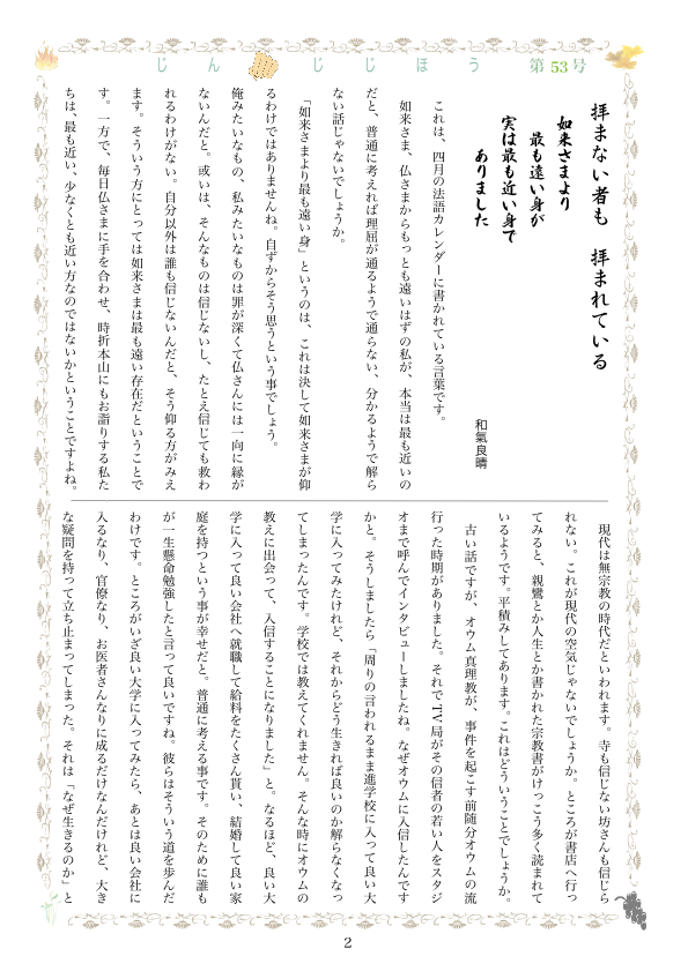 じん　じじほう　第53号
拝まない者も　拝まれている
如来さまより
最も遠い身が
実は最も近い身で
ありました
和氣良晴
これは、四月の法語カレンダーに書かれている言葉です。
如来さま、仏さまからもっとも遠いはずの私が、本当は最も近いの
だと、普通に考えれば理屈が通るようで通らない、分かるようで解ら
ない話じゃないでしょうか。
「如来さまより最も遠い身」というのは、これは決して如来さまが仰
るわけではありませんね。自ずからそう思うという事でしょう。
俺みたいなもの、私みたいなものは罪が深くて仏さんには一向に縁が
ないんだと。或いは、そんなものは信じないし、たとえ信じても救わ
れるわけがない。自分以外は誰も信じないんだと、そう仰る方がみえ
ます。そういう方にとっては如来さまは最も遠い存在だということで
す。一方で、毎日仏さまに手を合わせ、時折本山にもお詣りする私た
ちは、最も近い、少なくとも近い方なのではないかということですよね。
現代は無宗教の時代だといわれます。寺も信じない坊さんも信じら
れない。これが現代の空気じゃないでしょうか。ところが書店へ行っ
てみると、親鸞とか人生とか書かれた宗教書がけっこう多く読まれて
いるようです。平積みしてあります。これはどういうことでしょうか。
古い話ですが、オウム真理教が、事件を起こす前随分オウムの流
行った時期がありました。それでTV局がその信者の若い人をスタジ
オまで呼んでインタビューしましたね。なぜオウムに入信したんです
かと。そうしましたら「周りの言われるまま進学校に入って良い大
学に入ってみたけれど、それからどう生きれば良いのか解らなくなっ
てしまったんです。学校では教えてくれません。そんな時にオウムの
教えに出会って、入信することになりました」と。なるほど、良い大
学に入って良い会社へ就職して給料をたくさん貰い、結婚して良い家
庭を持つという事が幸せだと。普通に考える事です。そのために誰も
が一生懸命勉強したと言って良いですね。彼らはそういう道を歩んだ
わけです。ところがいざ良い大学に入ってみたら、あとは良い会社に
入るなり、官僚なり、お医者さんなりに成るだけなんだけれど、大き
な疑問を持って立ち止まってしまった。それは「なぜ生きるのか」と
2